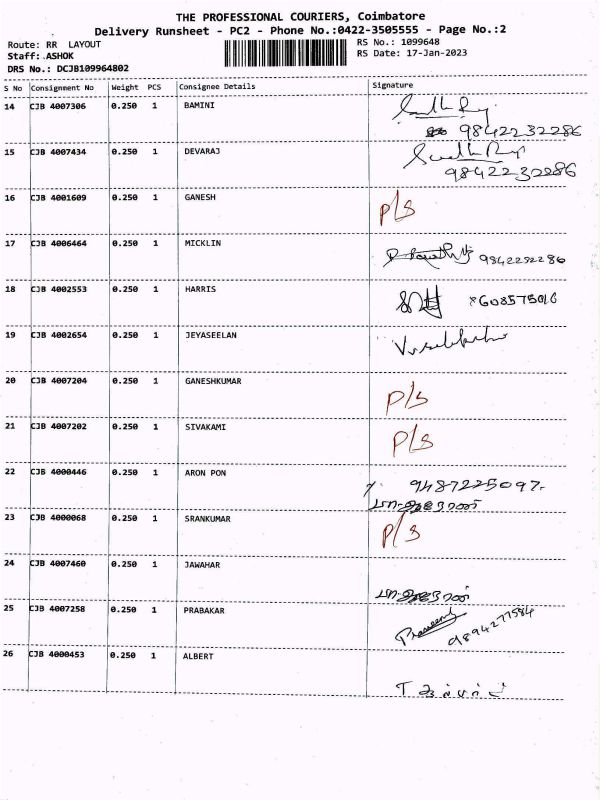 THE PROFESSIONAL COURIERS, Coimbatore
Delivery Runsheet - PC2 - Phone No.:0422-3505555 - Page No.:2
Route: RR LAYOUT
RS No.: 1099648
Staff: ASHOK
RS Date: 17-Jan-2023
DRS No.: DCJB109964802
S No Consignment No Weight PCS Consignee Details Signature
14 CJB 4007306 0.250 1 BAMINI
9842232286
15 CJB 4007434 0.250 1 DEVARAJ
9842232286
16 CJB 4001609 0.250 1 GANESH P/S
17 CJB 4006464 0.250 1 MICKLIN
18 CJB 4002553 0.250 1 HARRIS
19 CJB 4002654 0.250 1 JEYASEELAN
20 CJB 4007204 0.250 1 GANESHKUMAR P/S
21 CJB 4007202 0.250 1 SIVAKAMI P/S
22 CJB 4000446 0.250 1 ARON PON 9487225097-
23 CJB 4000068 0.250 1 SRANKUMAR P/S
24 CJB 4007460 0.250 1 JAWAHAR
25 CJB 4007258 0.250 1 PRABAKAR 9894277584
26 CJB 4000453 0.250 1 ALBERT